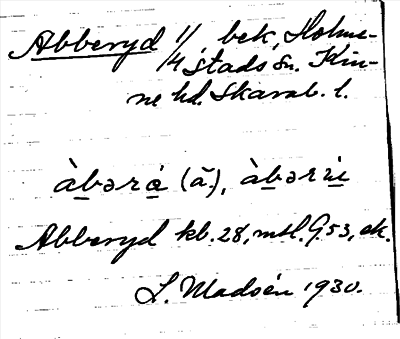 Abberyd 1/4 bek, Holme-
stads sn. Kin-
ne hd. Skarab. l.
àbərá (ã.), àbərù
Abberyd kb. 28, mtl. G. 53, ek.
L. Madsén 1930.